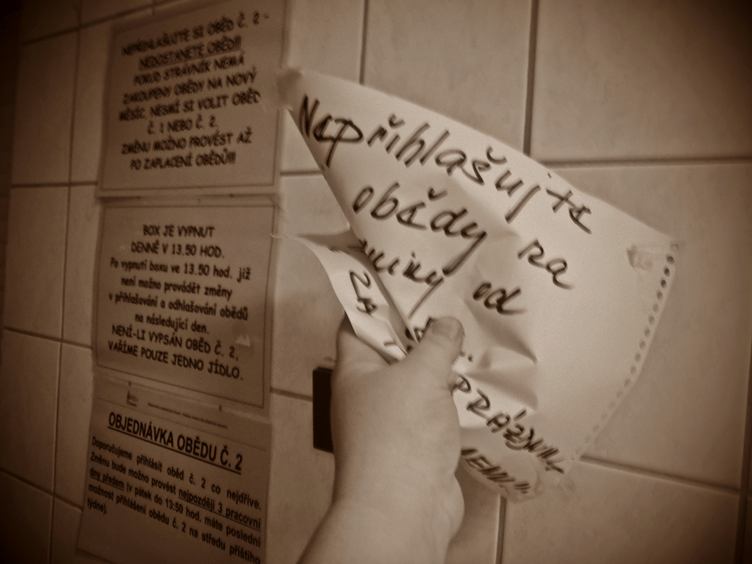 NEPŘIHLAŠUJTE SI OBĚD Č. 2 -
NEDOSTANETE OBĚD!!!
POKUD STRÁVNÍK NEMÁ
ZAKOUPENY OBĚDY NA NOVÝ
MĚSÍC, NESMÍ SI VOLIT OBĚD
Č. 1 NEBO Č. 2.
ZMĚNU MOŽNO PROVÉST AŽ
PO ZAPLACENÍ OBĚDŮ!!!
BOX JE VYPNUT
DENNĚ V 13.50 HOD.
Po vypnutí boxu ve 13.50 hod. již
není možno provádět změny
v přihlašování a odhlašování obědů
na následující den.
NENÍ-LI VYPSÁN OBĚD Č. 2,
VAŘÍME POUZE JEDNO JÍDLO.
OBJEDNÁVKA OBĚDU Č. 2
Doporučujeme přihlásit oběd č. 2 co nejdříve.
Změnu bude možno provést nejpozději 3 pracovní
dny předem (v pátek do 13:50 hod. máte poslední
možnost přihlášení obědu č. 2 na středu příštího
týdne).
Nepřihlašujte
obědy na
od
ZA
PRÁZDN